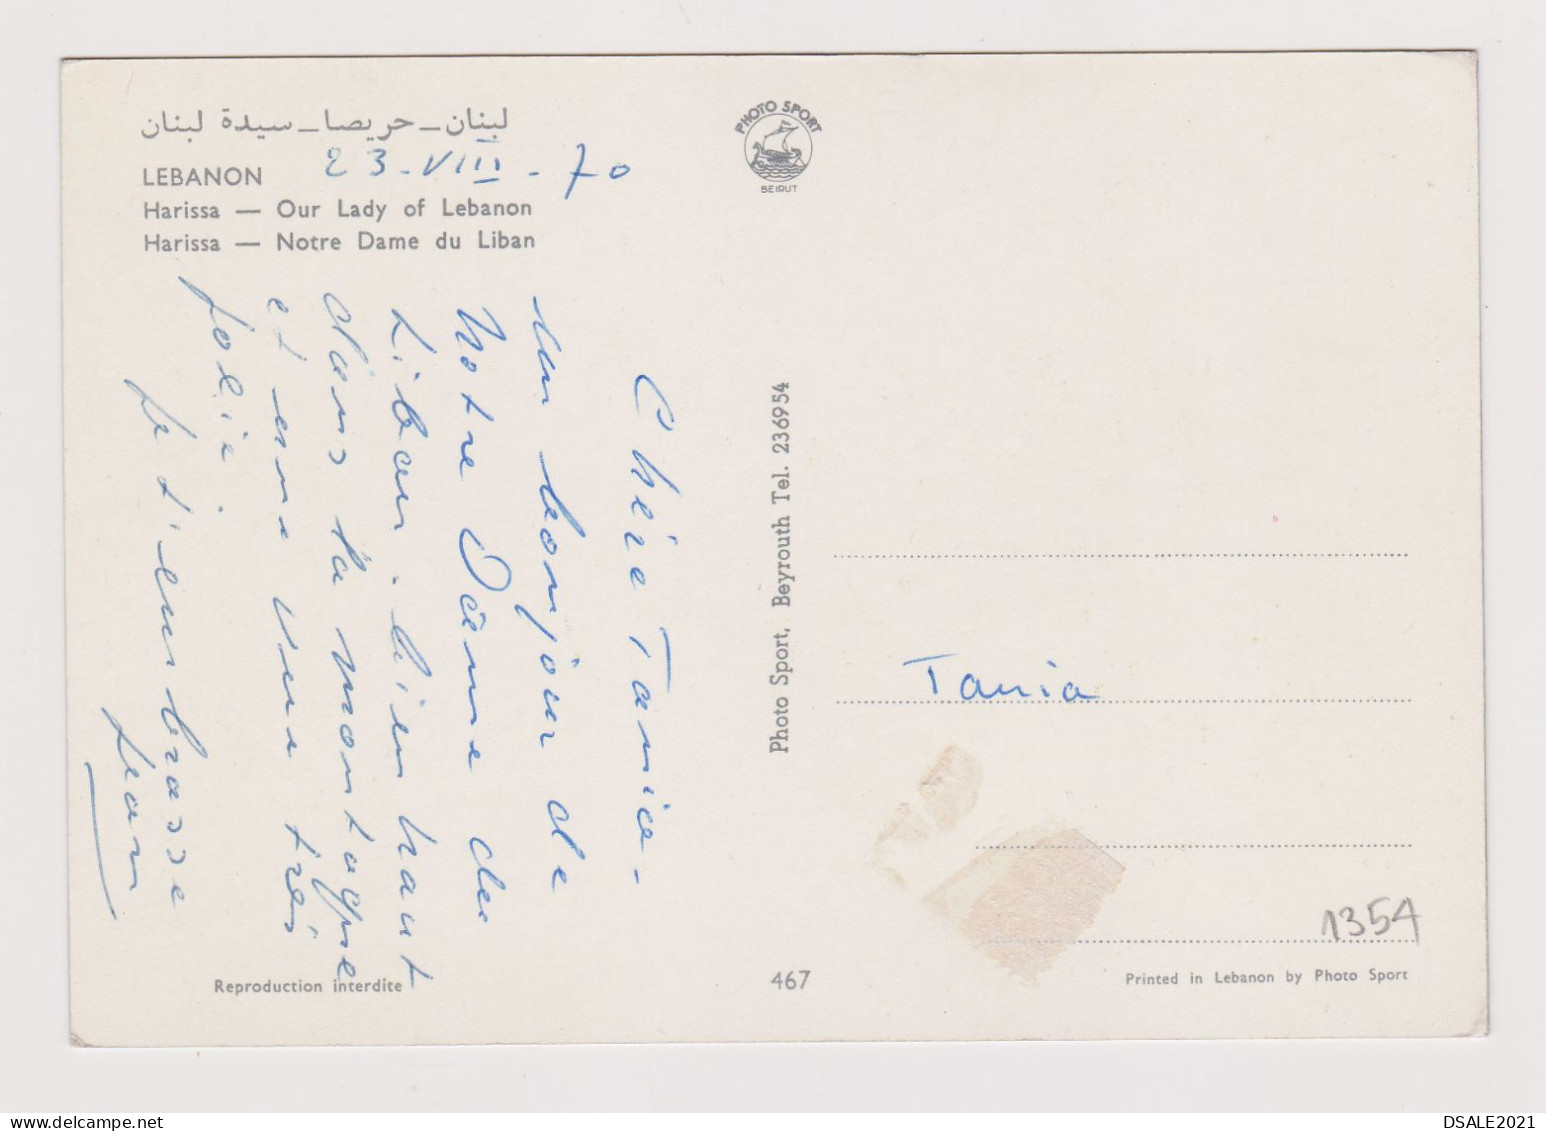 لبنان – حريصا – سيدة لبنان
23-VIII-70
LEBANON
Harissa — Our Lady of Lebanon
Harissa — Notre Dame du Liban
Chère Tania-
un bonjour de
Notre Dame du
Liban. bien haut
dans la montagne
et une vue très
jolie.
je t'embrasse
Jean
PHOTO SPORT
BEIRUT
Photo Sport, Beyrouth Tel. 236954
Tania
1354
Reproduction interdite
467
Printed in Lebanon by Photo Sport
DSALE2021